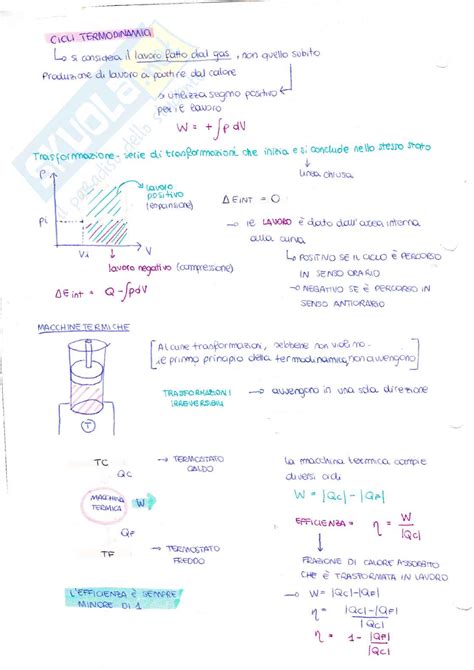 CICLI TERMODINAMICI
↳ si considera il lavoro fatto dal gas, non quello subito
Produzione di lavoro a partire dal calore
↳ utilizza segno positivo
per il lavoro
W = + ∫ p dV
Trasformazione - serie di trasformazioni che inizia e si conclude nello stesso stato
↳ linea chiusa
P
lavoro
positivo
(espansione)
Pi
Vi
V
ΔEint = 0
→ IL LAVORO È dato dall'area interna
alla curva
↳ POSITIVO SE IL CICLO È PERCORSO
IN SENSO ORARIO
→ NEGATIVO SE È PERCORSO IN
SENSO ANTIORARIO
lavoro negativo (compressione)
ΔEint = Q - ∫pdV
MACCHINE TERMICHE
[Alcune trasformazioni, sebbene non violino
il primo principio della termodinamica, non avvengono]
TRASFORMAZIONI
IRREVERSIBILI
→ avvengono in una sola direzione
T
TC → TERMOSTATO
CALDO
QC
MACCHINA
TERMICA
W
QF
TF → TERMOSTATO
FREDDO
L'EFFICIENZA È SEMPRE
MINORE DI 1
La macchina termica compie
diversi cicli
W = |QC| - |QF|
EFFICIENZA = η = W / |QC|
FRAZIONE DI CALORE ASSORBITO
CHE È TRASFORMATA IN LAVORO
↳ W = |QC| - |QF|
η = |QC| - |QF| / |QC|
η = 1 - |QF| / |QC|